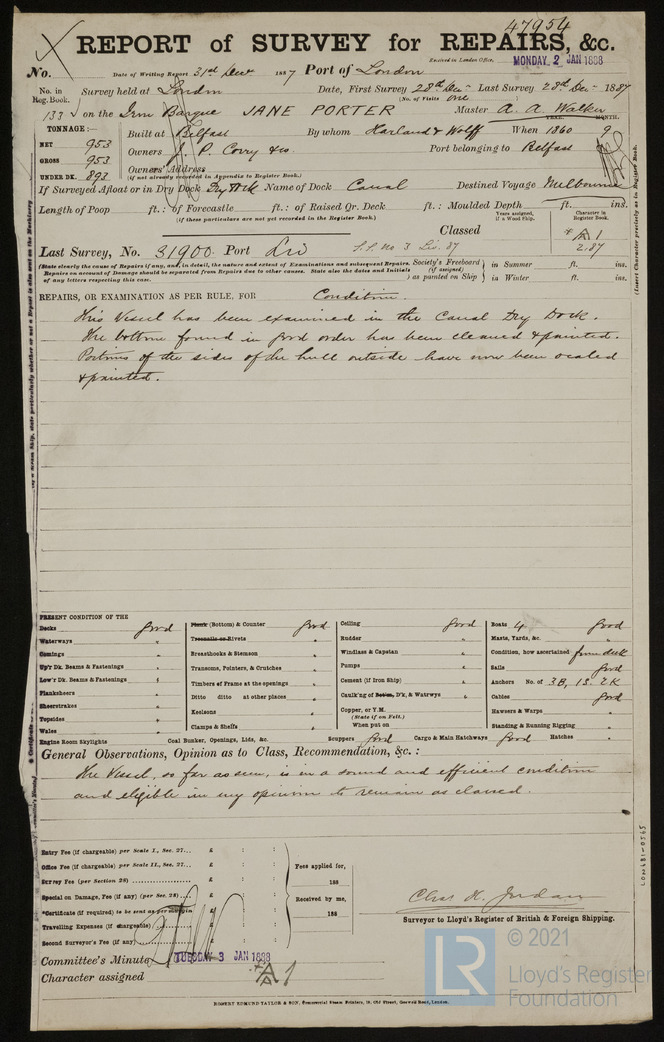 47954
REPORT of SURVEY for REPAIRS, &c.
Received in London Office, MONDAY 2 JAN 1888
No. Date of Writing Report 31st Decr 1887 Port of London
No. in Reg. Book. Survey held at London Date, First Survey 28th Dec Last Survey 28th Dec 1887
(No. of Visits one
133 on the Iron Barque JANE PORTER Master A. A. Walker
TONNAGE:— YEAR. MONTH.
NET 953 Built at Belfast By whom Harland & Wolff When 1860 9
GROSS 953 Owners J. P. Corry & Co. Port belonging to Belfast
UNDER DK. 893 Owners' Address
(if not already recorded in Appendix to Register Book.)
If Surveyed Afloat or in Dry Dock Dry Dock Name of Dock Canal Destined Voyage Melbourne
Length of Poop ft. : of Forecastle ft. : of Raised Qr. Deck ft. : Moulded Depth ft. ins.
(if these particulars are not yet recorded in the Register Book.)
Years assigned, if a Wood Ship. Character in Register Book.
Classed A 1
2.87
Last Survey, No. 31900 Port Liv S.S. No 3 Liv. 87
(State clearly the cause of Repairs if any, and, in detail, the nature and extent of Examinations and subsequent Repairs. Repairs on account of Damage should be separated from Repairs due to other causes. State also the dates and Initials of any letters respecting this case.
Society's Freeboard (if assigned) as painted on Ship in Summer ft. ins.
in Winter ft. ins.
(Insert Character precisely as in Register Book.
REPAIRS, OR EXAMINATION AS PER RULE, FOR Condition.
This Vessel has been examined in the Canal Dry Dock.
The bottom found in good order has been cleaned & painted.
Portions of the sides of the hull outside have now been scaled
& painted.
PRESENT CONDITION OF THE
Decks good
Waterways "
Comings "
Up'r Dk. Beams & Fastenings "
Low'r Dk. Beams & Fastenings "
Planksheers "
Sheerstrakes "
Topsides "
Wales "
Engine Room Skylights
Plank (Bottom) & Counter good
Treenails or Rivets "
Breasthooks & Stemson "
Transoms, Pointers, & Crutches "
Timbers of Frame at the openings "
Ditto ditto at other places "
Keelsons "
Clamps & Shelfs "
Coal Bunker, Openings, Lids, &c.
Ceiling good
Rudder "
Windlass & Capstan "
Pumps "
Cement (if Iron Ship) "
Caulk'ng of Bottom, D'k, & Watrwys "
Copper, or Y.M.
(State if on Felt.)
When put on
Scuppers good Cargo & Main Hatchways good Hatches "
Boats 4 good
Masts, Yards, &c. "
Condition, how ascertained from deck
Sails good
Anchors No. of 3B, 1S. 2K
Cables good
Hawsers & Warps "
Standing & Running Rigging "
General Observations, Opinion as to Class, Recommendation, &c. :
The Vessel, so far as seen, is in a sound and efficient condition
and eligible in my opinion to remain as classed.
Entry Fee (if chargeable) per Scale I., Sec. 27... £ : :
Office Fee (if chargeable) per Scale II., Sec. 27... £ : :
Survey Fee (per Section 28) £ : :
Special on Damage, Fee (if any) (per Sec. 28) £ : :
*Certificate (if required) to be sent as per margin £ : :
Travelling Expenses (if chargeable) £ : :
Second Surveyor's Fee (if any) £ : :
Fees applied for,
188
Received by me,
188
Chas H. Jordan
Surveyor to Lloyd's Register of British & Foreign Shipping.
Committee's Minute TUESDAY 3 JAN 1888
Character assigned A 1
ROBERT EDMUND TAYLOR & SON, Commercial Steam Printers, 19, Old Street, Goswell Road, London.
LON481-0545
LR
© 2021
Lloyd's Register
Foundation